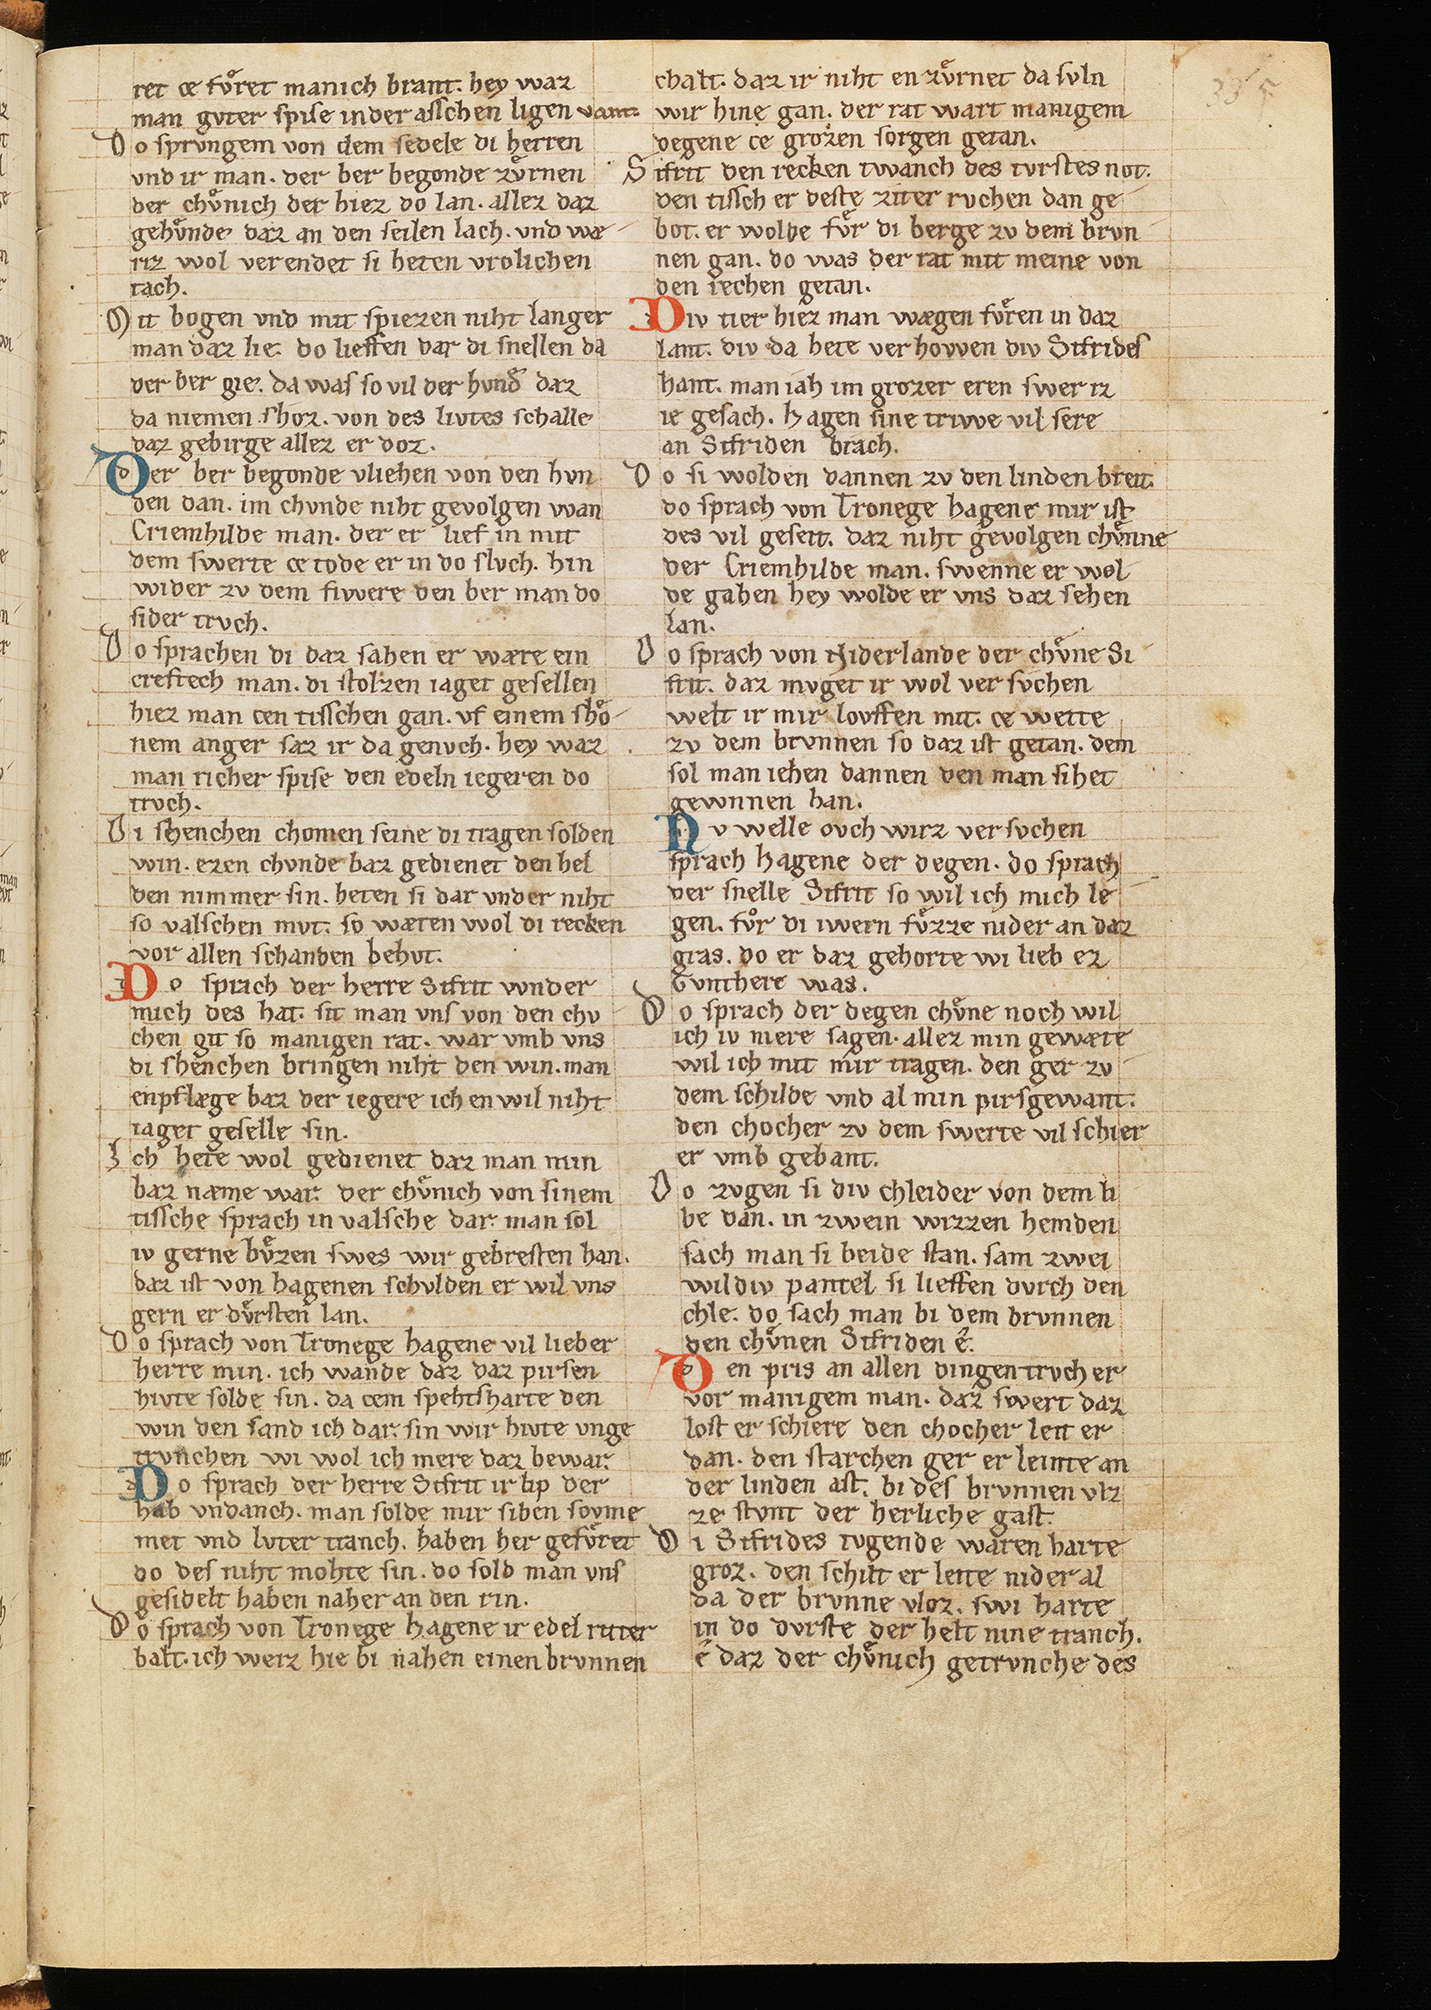 ret ce fuͤret manich brant. hey waz
man gvter spise inder asschen ligen vant.
Do sprvngem von dem sedele di herren
vnd ir man. der ber begonde zvͤrnen
der chvͤnich der hiez do lan. allez daz
gehvͤnde daz an den seilen lach. vnd wæ
riz wol verendet si heten vrolichen
tach.
Mit bogen vnd mit spiezen niht langer
man daz lie. do lieffen dar di snellen da
der ber gie. da was so vil der hvnd͛ daz
da niemen shoz. von des livtes schalle
daz gebirge allez er doz.
Der ber begonde vliehen von den hvn
den dan. im chvnde niht gevolgen wan
Criemhilde man. der er lief in mit
dem swerte ce tode er in do slvch. hin
wider zv dem fiwere den ber man do
sider trvch.
Do sprachen di daz sahen er wære ein
creftech man. di stolzen iaget gesellen
hiez man cen tisschen gan. vf einem shoͤ
nem anger saz ir da genvch. hey waz
man richer spise den edeln iegeren do
trvch.
Di shenchen chomen seine di tragen solden
win. ezen chvnde baz gedienet den hel
den nimmer sin. heten si dar vnder niht
so valschen mvt. so wæren wol di recken
vor allen schanden behvt.
Do sprach der herre Sifrit wnder
mich des hat. sit man vns von den chv
chen git so manigen rat. war vmb vns
di shenchen bringen niht den win. man
enpflæge baz der iegere ich en wil niht
iaget geselle sin.
Ich hete wol gedienet daz man min
baz næme war. der chvͤnich von sinem
tissche sprach in valsche dar. man sol
iv gerne bvͤzen swes wir gebresten han.
daz ist von hagenen schvlden er wil vns
gern er dvͤrsten lan.
Do sprach von Tronege hagene vil lieber
herre min. ich wande daz daz pirsen
hivte solde sin. da cem spehtsharte den
win den sand ich dar. sin wir hivte vnge
trvnchen wi wol ich mere daz bewar.
Do sprach der herre Sifrit ir lip der
hab vndanch. man solde mir siben soyme
met vnd lvter tranch. haben her gefvͤret
do des niht mohte sin. do sold man vns
gesidelt haben naher an den rin.
Do sprach von Tronege hagene ir edel riter
balt. ich weiz hie bi nahen einen brvnnen
chalt. daz ir niht en zvͤrnet da svln
wir hine gan. der rat wart manigem
degene ce grozen sorgen getan.
Sifrit den recken twanch des tvrstes not.
den tissch er deste ziter rvchen dan ge
bot. er wolde fvͤr di berge zv dem brvn
nen gan. do was der rat mit meine von
den rechen getan.
Div tier hiez man wægen fvͤren in daz
lant. div da hete verhowen div Sifrides
hant. man iah im grozer eren swer iz
ie gesach. hagen sine trivve vil sere
an Sifriden brach.
Do si wolden dannen zv den linden breit.
do sprach von Tronege hagene mir ist
des vil geseit. daz niht gevolgen chvͤnne
der Criemhilde man. swenne er wol
de gahen hey wolde er vns daz sehen
lan.
Do sprach von Niderlande der chvͤne Si
frit. daz mvget ir wol versvchen
welt ir mir lovffen mit. ce wette
zv dem brvnnen so daz ist getan. dem
sol man iehen dannen den man sihet
gewnnen han.
Nv welle ovch wirz versvchen
sprach hagene der degen. do sprach
der snelle Sifrit so wil ich mich le
gen. fvͤr di iwern fvͤzze nider an daz
gras. do er daz gehorte wi lieb ez
Gvnthere was.
Do sprach der degen chvͤne noch wil
ich iv mere sagen. allez min gewæte
wil ich mit mir tragen. den ger zv
dem schilde vnd al min pirsgewant.
den chocher zv dem swerte vil schier
er vmb gebant.
Do zvgen si div chleider von dem li
be dan. in zwein wizzen hemden
sach man si beide stan. sam zwei
wildiv pantel si lieffen dvrch den
chle. do sach man bi dem brvnnen
den chvͤnen Sifriden e͛.
Den pris an allen dingen trvch er
vor manigem man. daz swert daz
lost er schiere den chocher leit er
dan. den starchen ger er leinte an
der linden ast. bi des brvnnen vlz
ze stvnt der herliche gast.
Di Sifrides tvgende waren harte
groz. den schilt er leite nider al
da der brvnne vloz. swi harte
in do dvrste der helt nine tranch.
é daz der chvͤnich getrvnche des